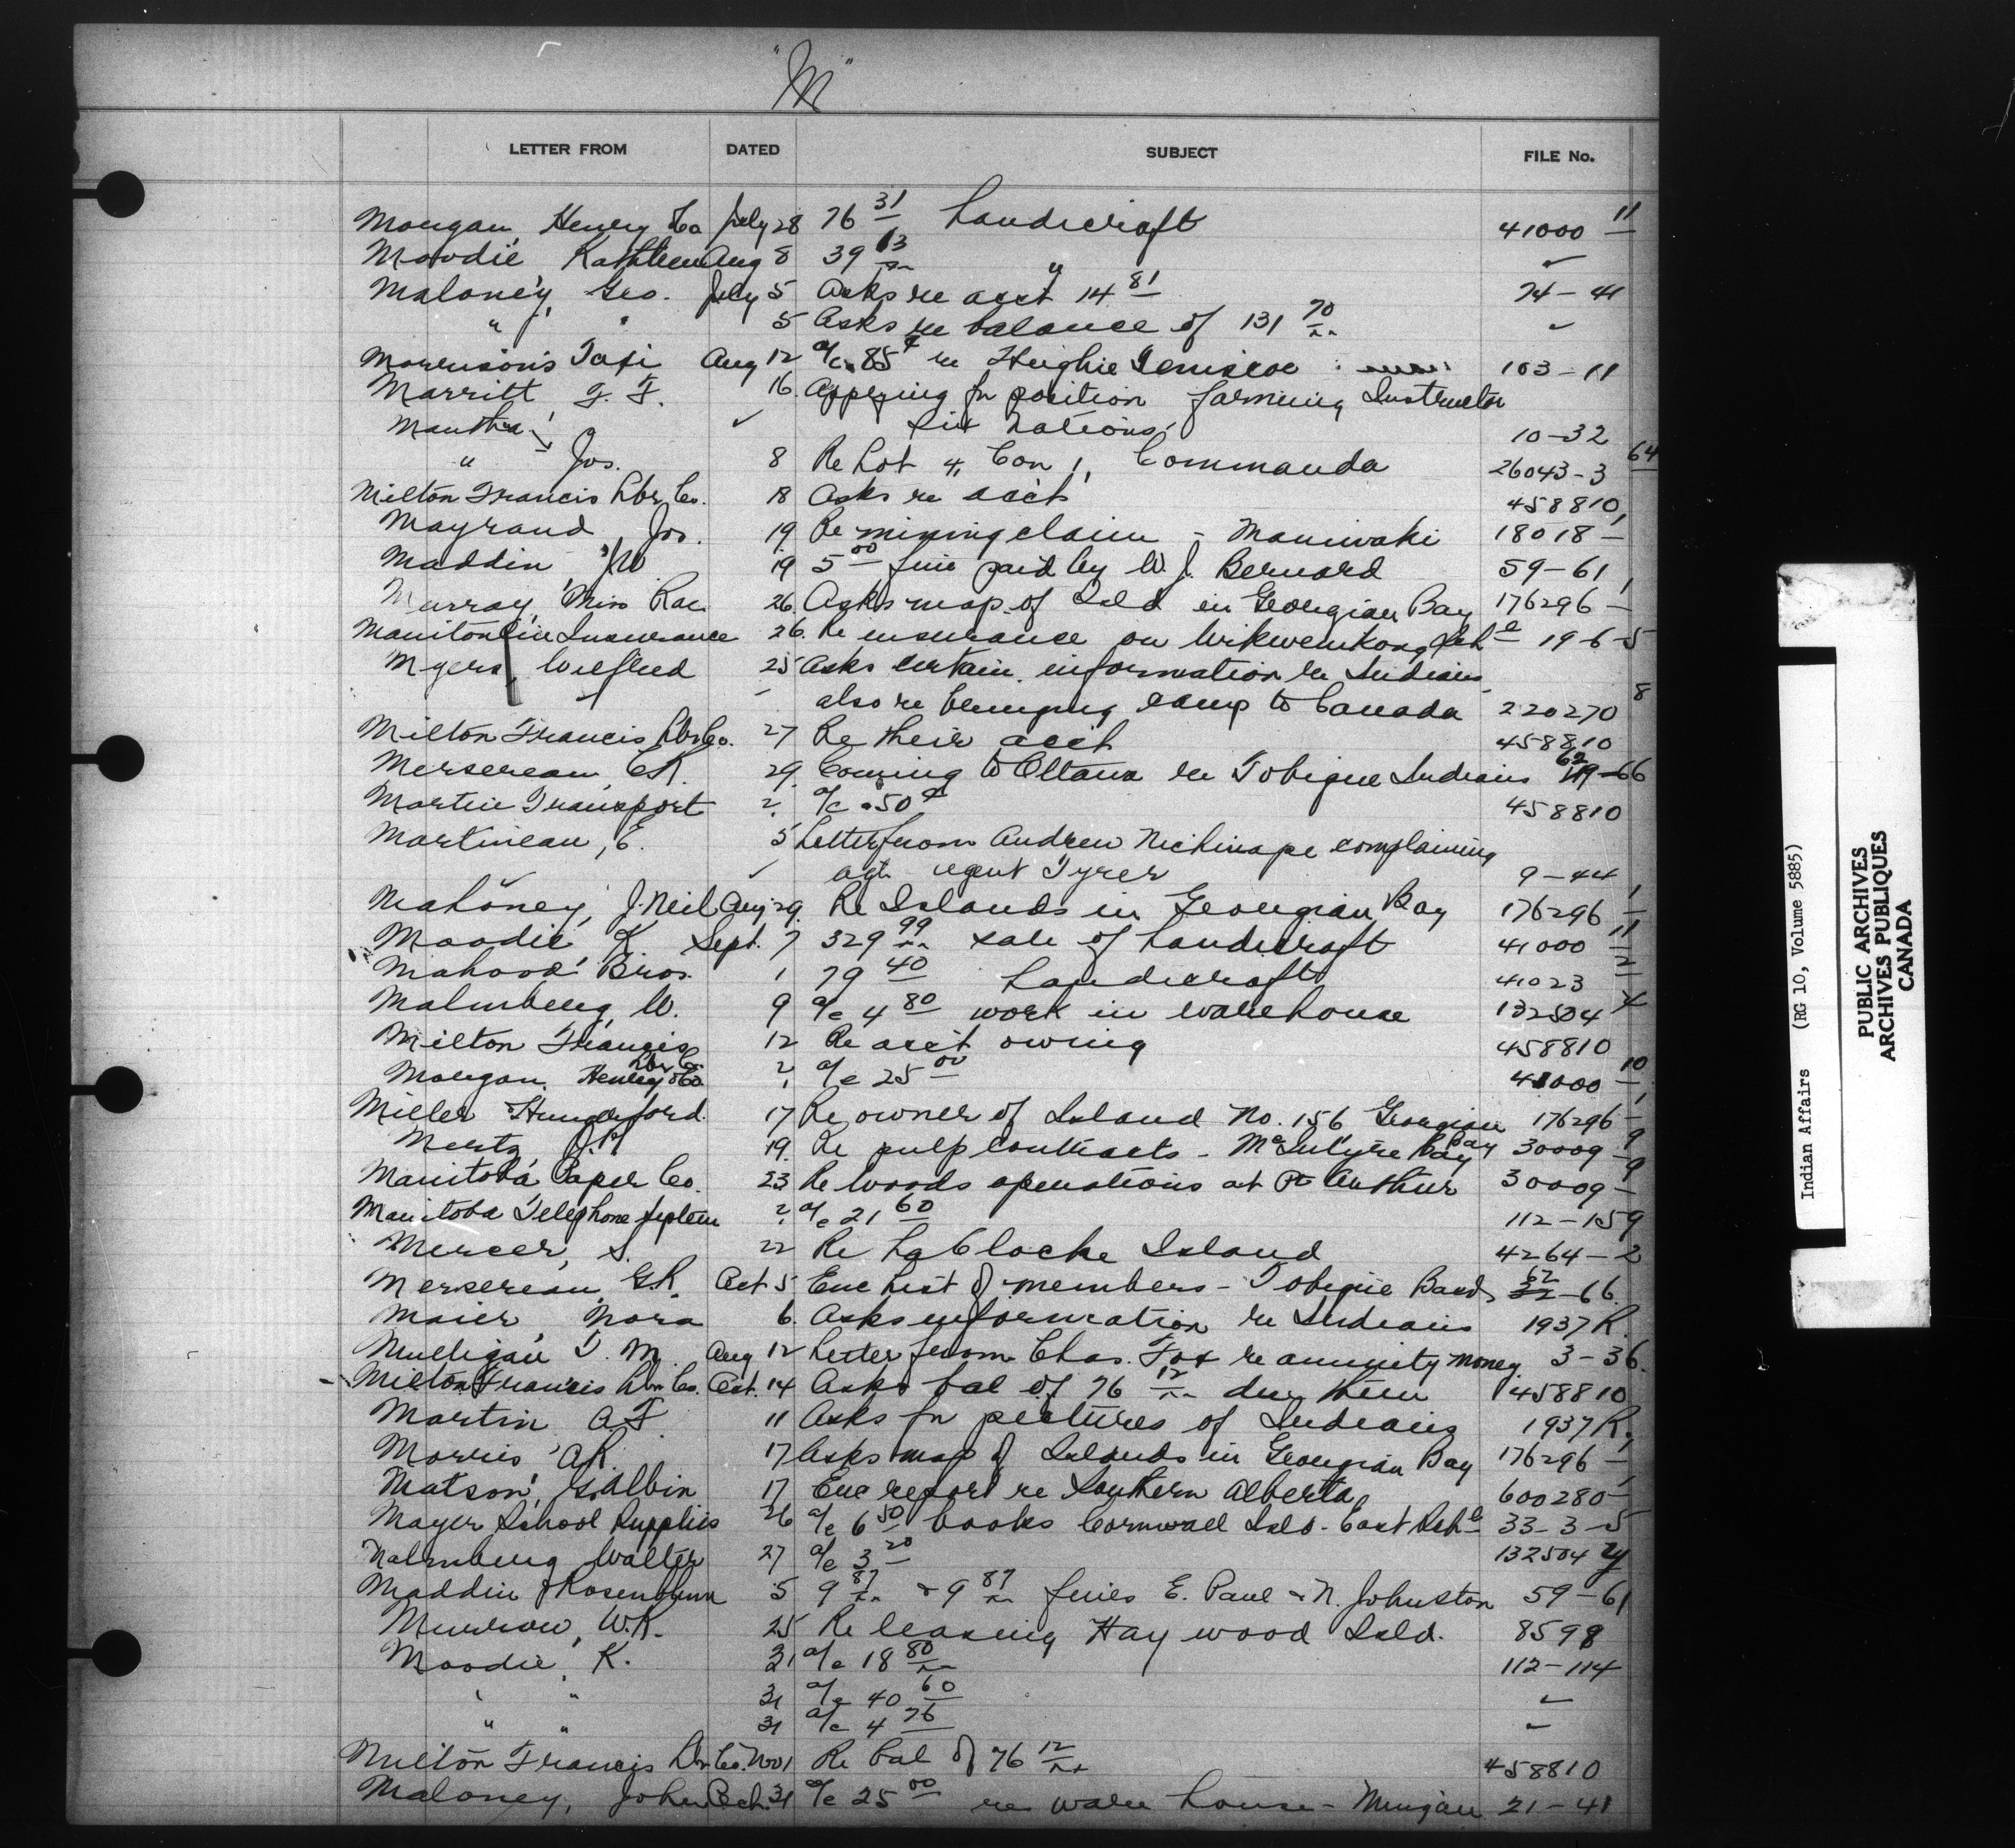 "M"
LETTER FROM DATED SUBJECT FILE No.
Morgan, Henry Co July 28 76 31 handicraft 41000 11
Moodie Kathleen Aug 8 39 63 " ✓
Maloney, Geo. July 5 Asks re acct 14 81 74-41
" " 5 Asks re balance of 131 70 ✓
Morrison's Taxi Aug 12 a/c .85¢ re Hughie 103-11
Marritt F. F. 16 Applying for position farming Instructor
Six Nations 10-32
" Jos. 8 Re Lot 4, Con 1, Commanda 26043-3 64
Milton Francis Lbr Co. 18 Asks re acct 458810
Mayrand Jos. 19 Re mining claim - Maniwaki 18018-1
Maddin, JW 19 5 00 fine paid by W. J. Bernard 59-61
Murray, Miss Rae 26 Asks map of Isld in Georgian Bay 176296-1
Manitoulin Insurance 26 Re insurance on Wikwemkong Schl 19-6-5
Myers, Wilfred 25 Asks certain information re Indians
also re bringing camp to Canada 220270 8
Milton Francis Lbr Co. 27 Re their acct 458810
Mersereau, 29 Coming to Ottawa re Tobique Indians 62-66
Martin Transport ? a/c .50¢ 458810
Martineau, E. 5 Letter from Andrew complaining
agt. agent Tyrer 9-44
Mahoney, J. Neil Aug 29 Re Islands in Georgian Bay 176296 1
Moodie K Sept. 7 329 99 sale of handicraft 41000 11
Mahood Bros. 1 79 40 handicraft 41023 2
Malmberg, W. 9 a/c 4 80 work in warehouse 132504 4
Milton Francis Lbr Co 12 Re acct owing 458810
Morgan, Henry & Co ? a/c 25 00 41000 10
Miller Hungerford. 17 Re owner of Island No. 156 Georgian Bay 176296-1
Mertz, 19 Re pulp contracts - McIntyre Bay 30009-9
Manitoba Paper Co. 23 Re woods operations at Pt Arthur 30009-9
Manitoba Telephone System ? a/c 21 60 112-159
Mercer, S. 22 Re La Cloche Island 4264-2
Mersereau, G.R. Oct 5 Enc List of members - Tobique Band 62-66
Maier, Nora 6 Asks information re Indians 1937 R.
Mulligan T. M. Aug 12 Letter from Chas. Fox re annuity money 3-36.
Milton Francis Lbr Co. Oct. 14 Asks bal of 76 12 due them 458810
Martin A.F. 11 Asks for pictures of Indians 1937 R.
Morris A.R. 17 Asks map of Islands in Georgian Bay 176296-1
Matson, G. Albin 17 Enc report re Southern Alberta 600280-1
Moyer School Supplies 26 a/c 6 50 books Cornwall Isld. East Schl 33-3-5
Malmberg Walter 27 a/c 3 20 132504
Maddin & Rosenblum 5 9 87 & 9 87 fines E. Paul & N. Johnston 59-61
W.R. 25 Re leasing Hay wood Isld. 8598
Moodie, K. 31 a/c 18 80 112-114
" " 31 a/c 40 60 ✓
" " 31 a/c 4 76 ✓
Milton Francis Lbr Co. Nov 1 Re bal of 76 12 458810
Maloney, John Oct. 31 a/c 25 00 re ware house - 21-41
Indian Affairs (RG 10, Volume 5885)
PUBLIC ARCHIVES
ARCHIVES PUBLIQUES
CANADA